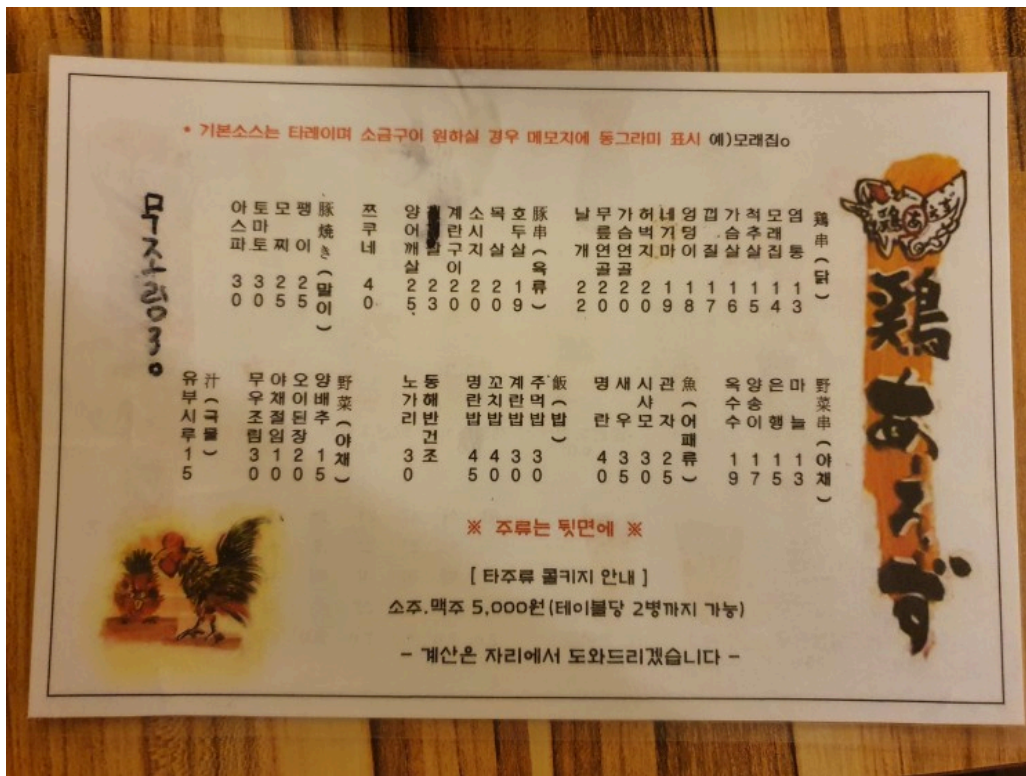 * 기본소스는 타레이며 소금구이 원하실 경우 메모지에 동그라미 표시 예)모래집o
鶏串(닭)
염통 13
모래집 14
척추살 15
가슴살 16
껍질 17
엉덩이 18
네기마 19
허벅지 20
가슴연골 20
무릎연골 20
날개 22
豚串(육류)
호두살 19
목살 20
소시지 20
계란구이 20
살 23
양어깨살 25
쯔쿠네 40
豚焼き(말이)
팽이 25
모찌 25
토마토 30
아스파 30
무조림 30
野菜串(야채)
마늘 13
은행 15
양송이 17
옥수수 19
魚(어패류)
관자 25
시샤모 30
새우 35
명란 40
飯(밥)
주먹밥 30
계란밥 30
꼬치밥 40
명란밥 45
동해반건조
노가리 30
野菜(야채)
양배추 15
오이된장 20
야채절임 10
무우조림 30
汁(국물)
유부시루 15
※ 주류는 뒷면에 ※
[ 타주류 콜키지 안내 ]
소주.맥주 5,000원(테이블당 2병까지 가능)
- 계산은 자리에서 도와드리겠습니다 -
鶏 あーえず